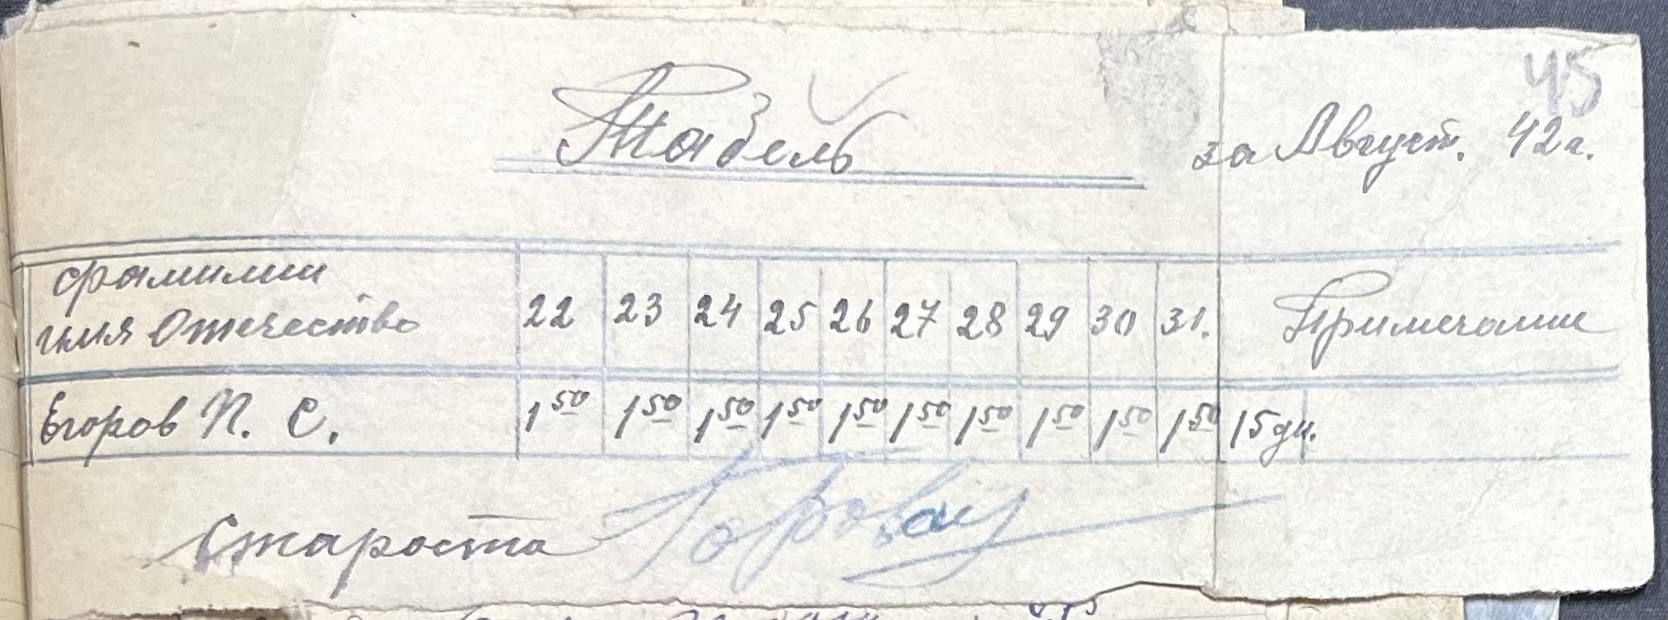 45
Табель за Август. 42 г.
фамилии
имя Отчество 22 23 24 25 26 27 28 29 30 31. Примечание
Егоров П. С. 1 50 1 50 1 50 1 50 1 50 1 50 1 50 1 50 1 50 1 50 15 дн.
Староста